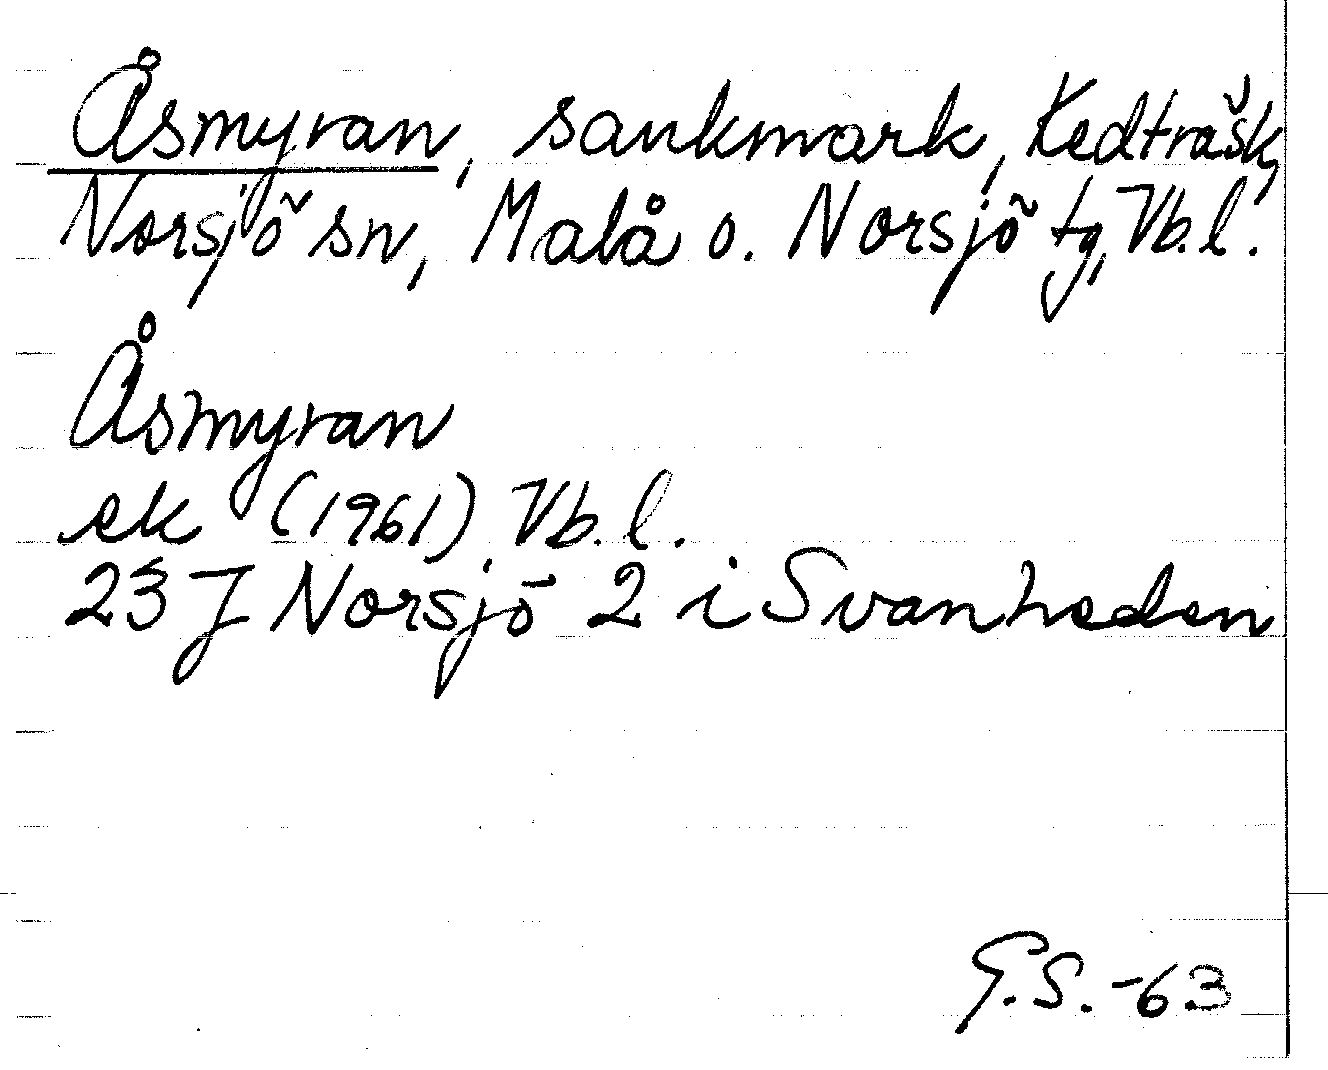 Åsmyran, sankmark, Kedträsk,
Norsjö sn, Malå o. Norsjö tg, Vb. l.
Åsmyran
ek (1961) Vb. l.
23 J Norsjö 2 i Svanheden
G.S. -63